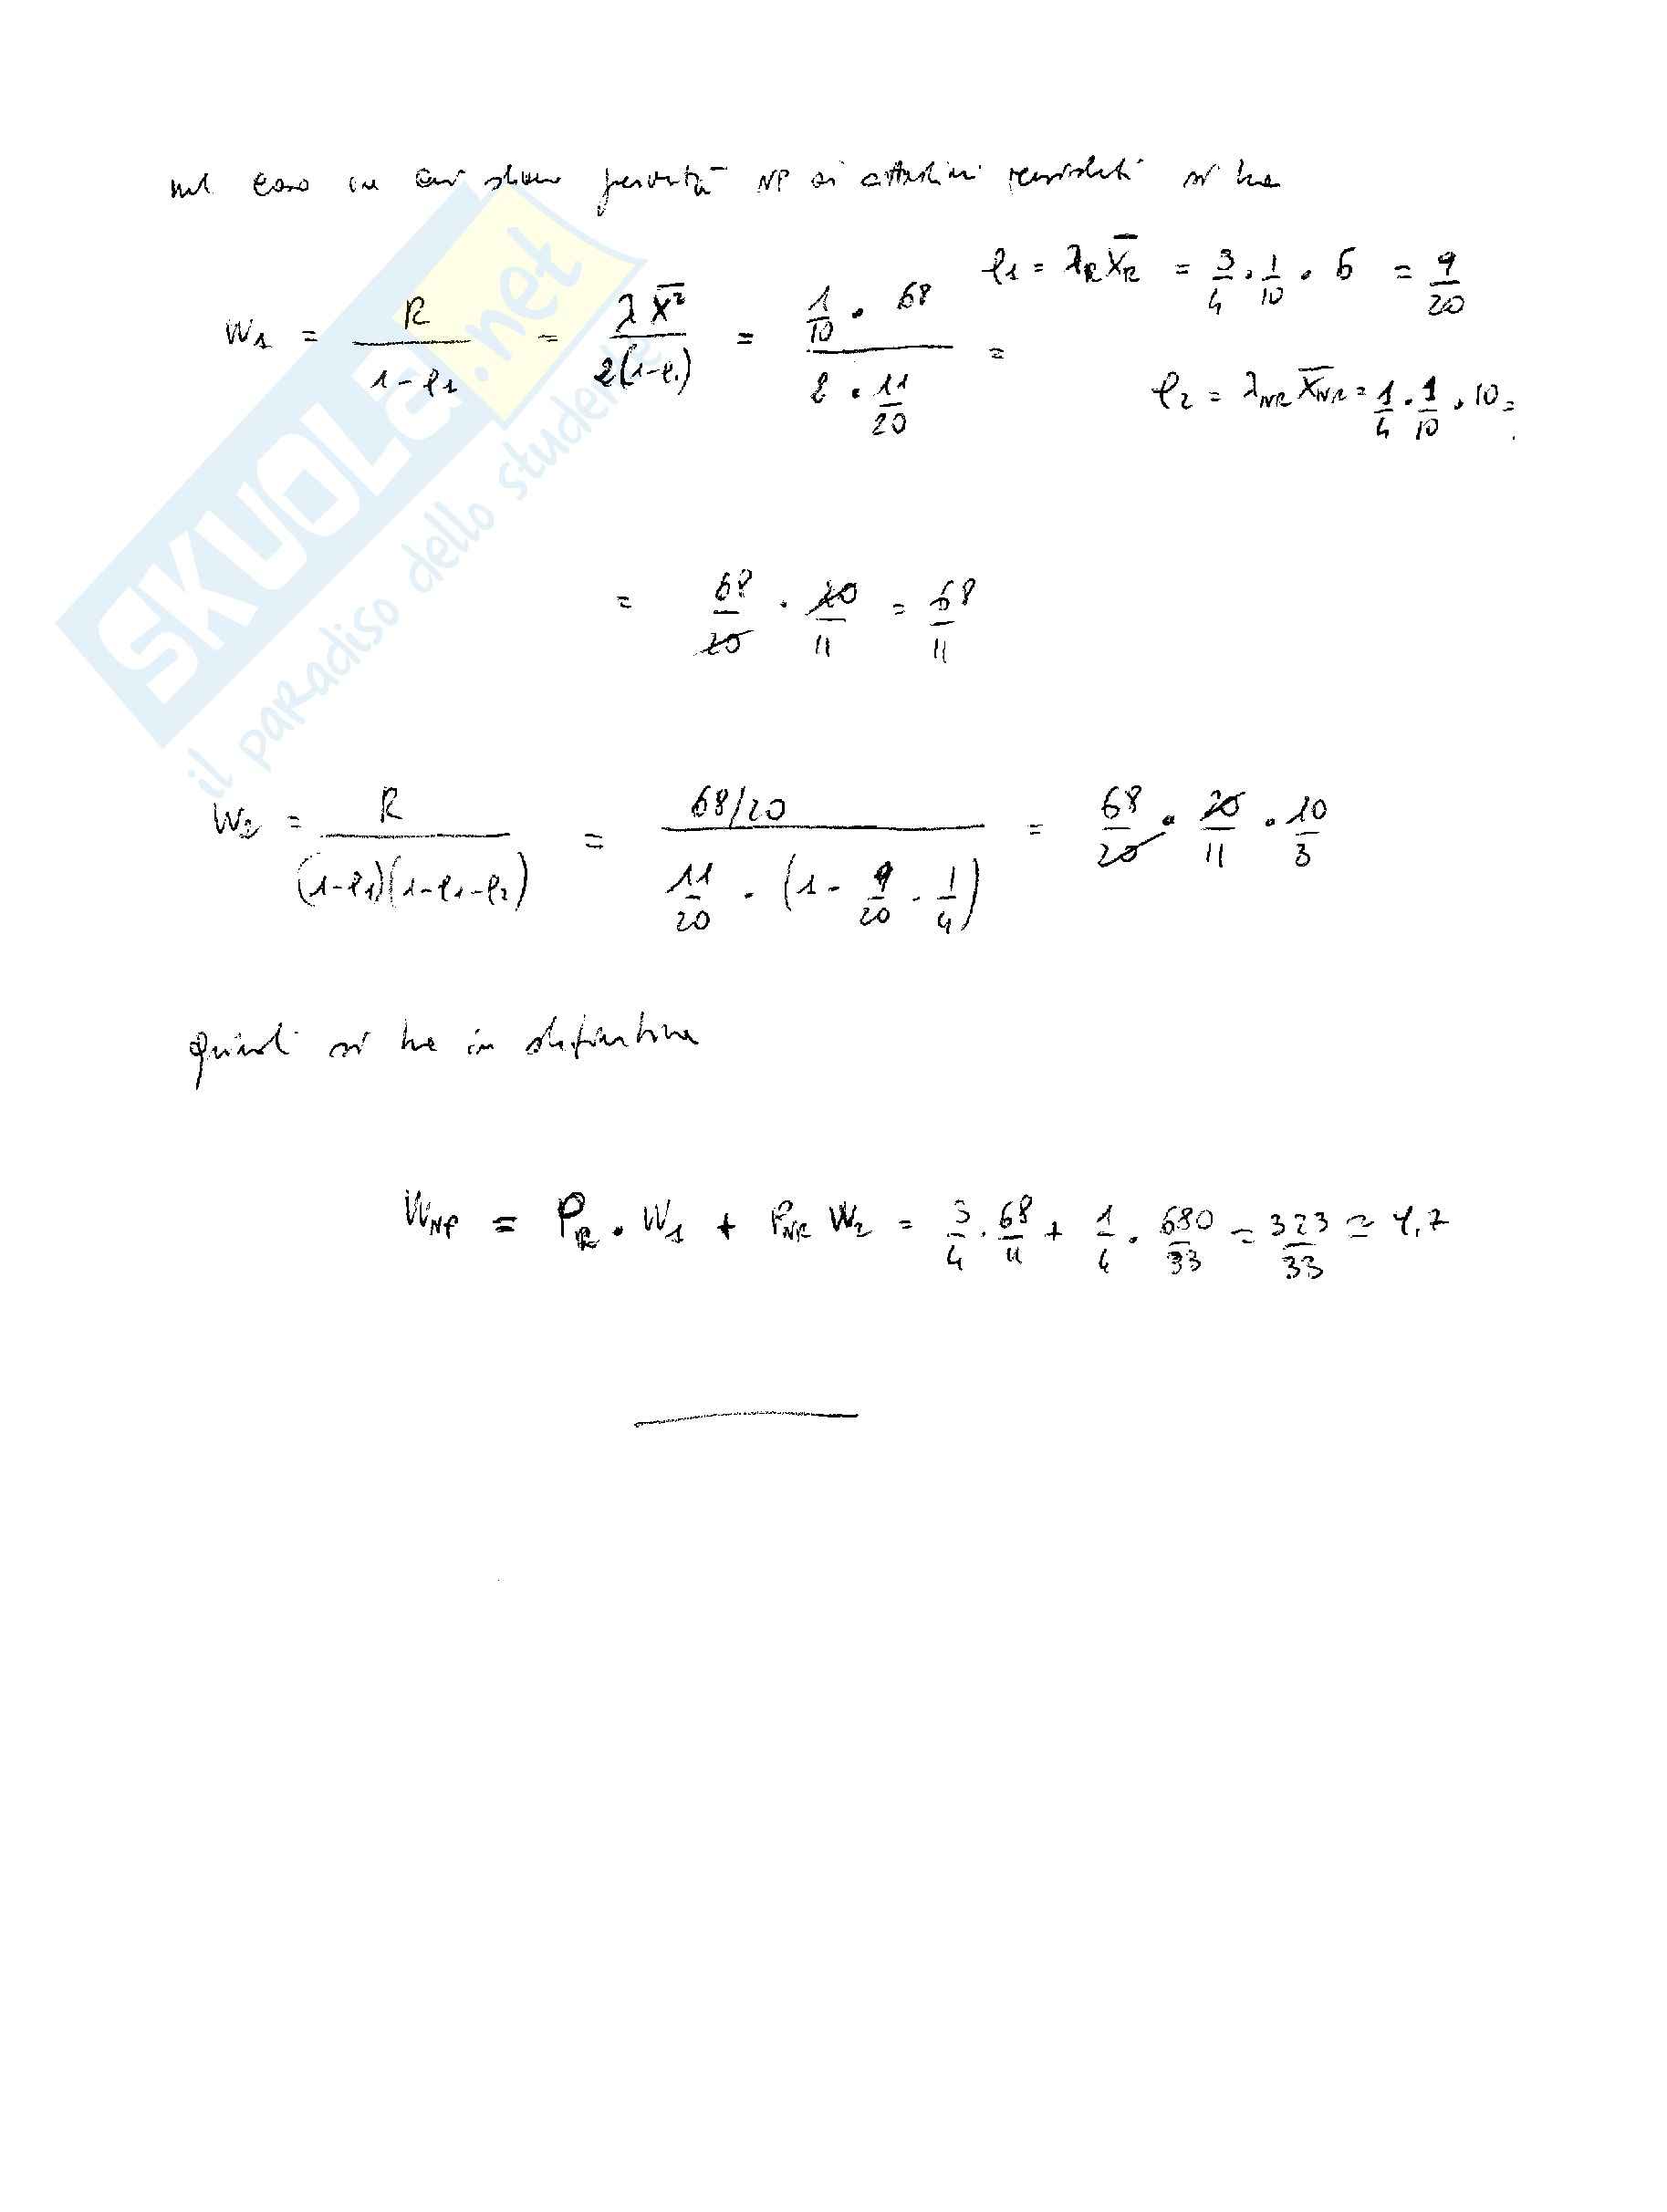 nel caso in cui diamo priorità NP ai cittadini residenti si ha
ρ1 = λR X̄R = 3/4 · 1/10 · 6 = 9/20
W1 = R/(1-ρ1) = λ X̄²/(2(1-ρ1)) = (1/10 · 68)/(2 · 11/20) =
ρ2 = λNR X̄NR = 1/4 · 1/10 · 10 =
= 68/20 · 20/11 = 68/11
W2 = R/((1-ρ1)(1-ρ1-ρ2)) = (68/20)/(11/20 · (1 - 9/20 - 1/4)) = 68/20 · 20/11 · 10/3
Quindi si ha in definitiva
WNP = PR · W1 + PNR W2 = 3/4 · 68/11 + 1/4 · 680/33 = 323/33 ≃ 9,7
SKUOLA.net
il paradiso dello studente